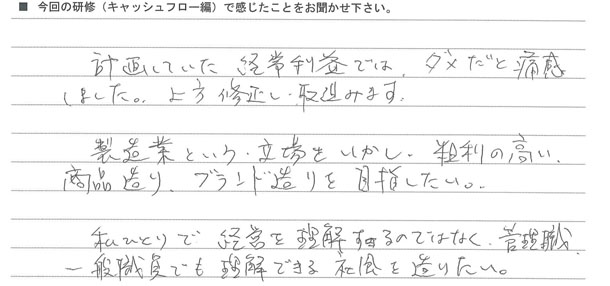 ■ 今回の研修（キャッシュフロー編）で感じたことをお聞かせ下さい。
計画していた経常利益では、ダメだと痛感
しました。 修正し、取組みます。
製造業という立場をいかし、粗利の高い、
商品造り、ブランド造りを目指したい。
私ひとりで経営を理解するのではなく、管理職、
一般職員でも理解できる社風を造りたい。